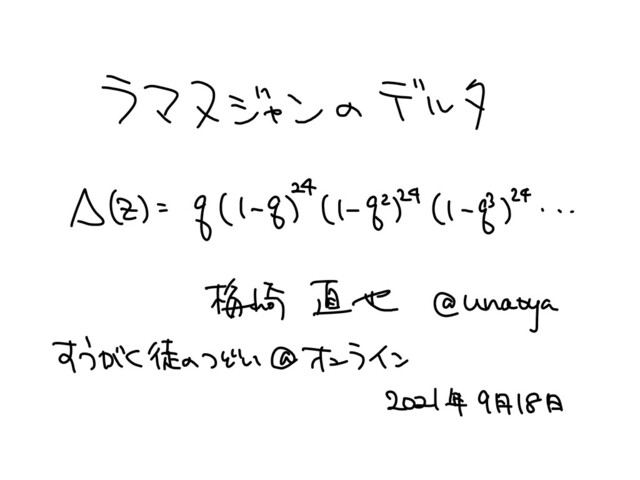 ラマヌジャンのデルタ
Δ(z) = q(1-q)^24 (1-q^2)^24 (1-q^3)^24 ...
梅崎 直也 @unaoya
すうがく徒のつどい@オンライン
2021年9月18日